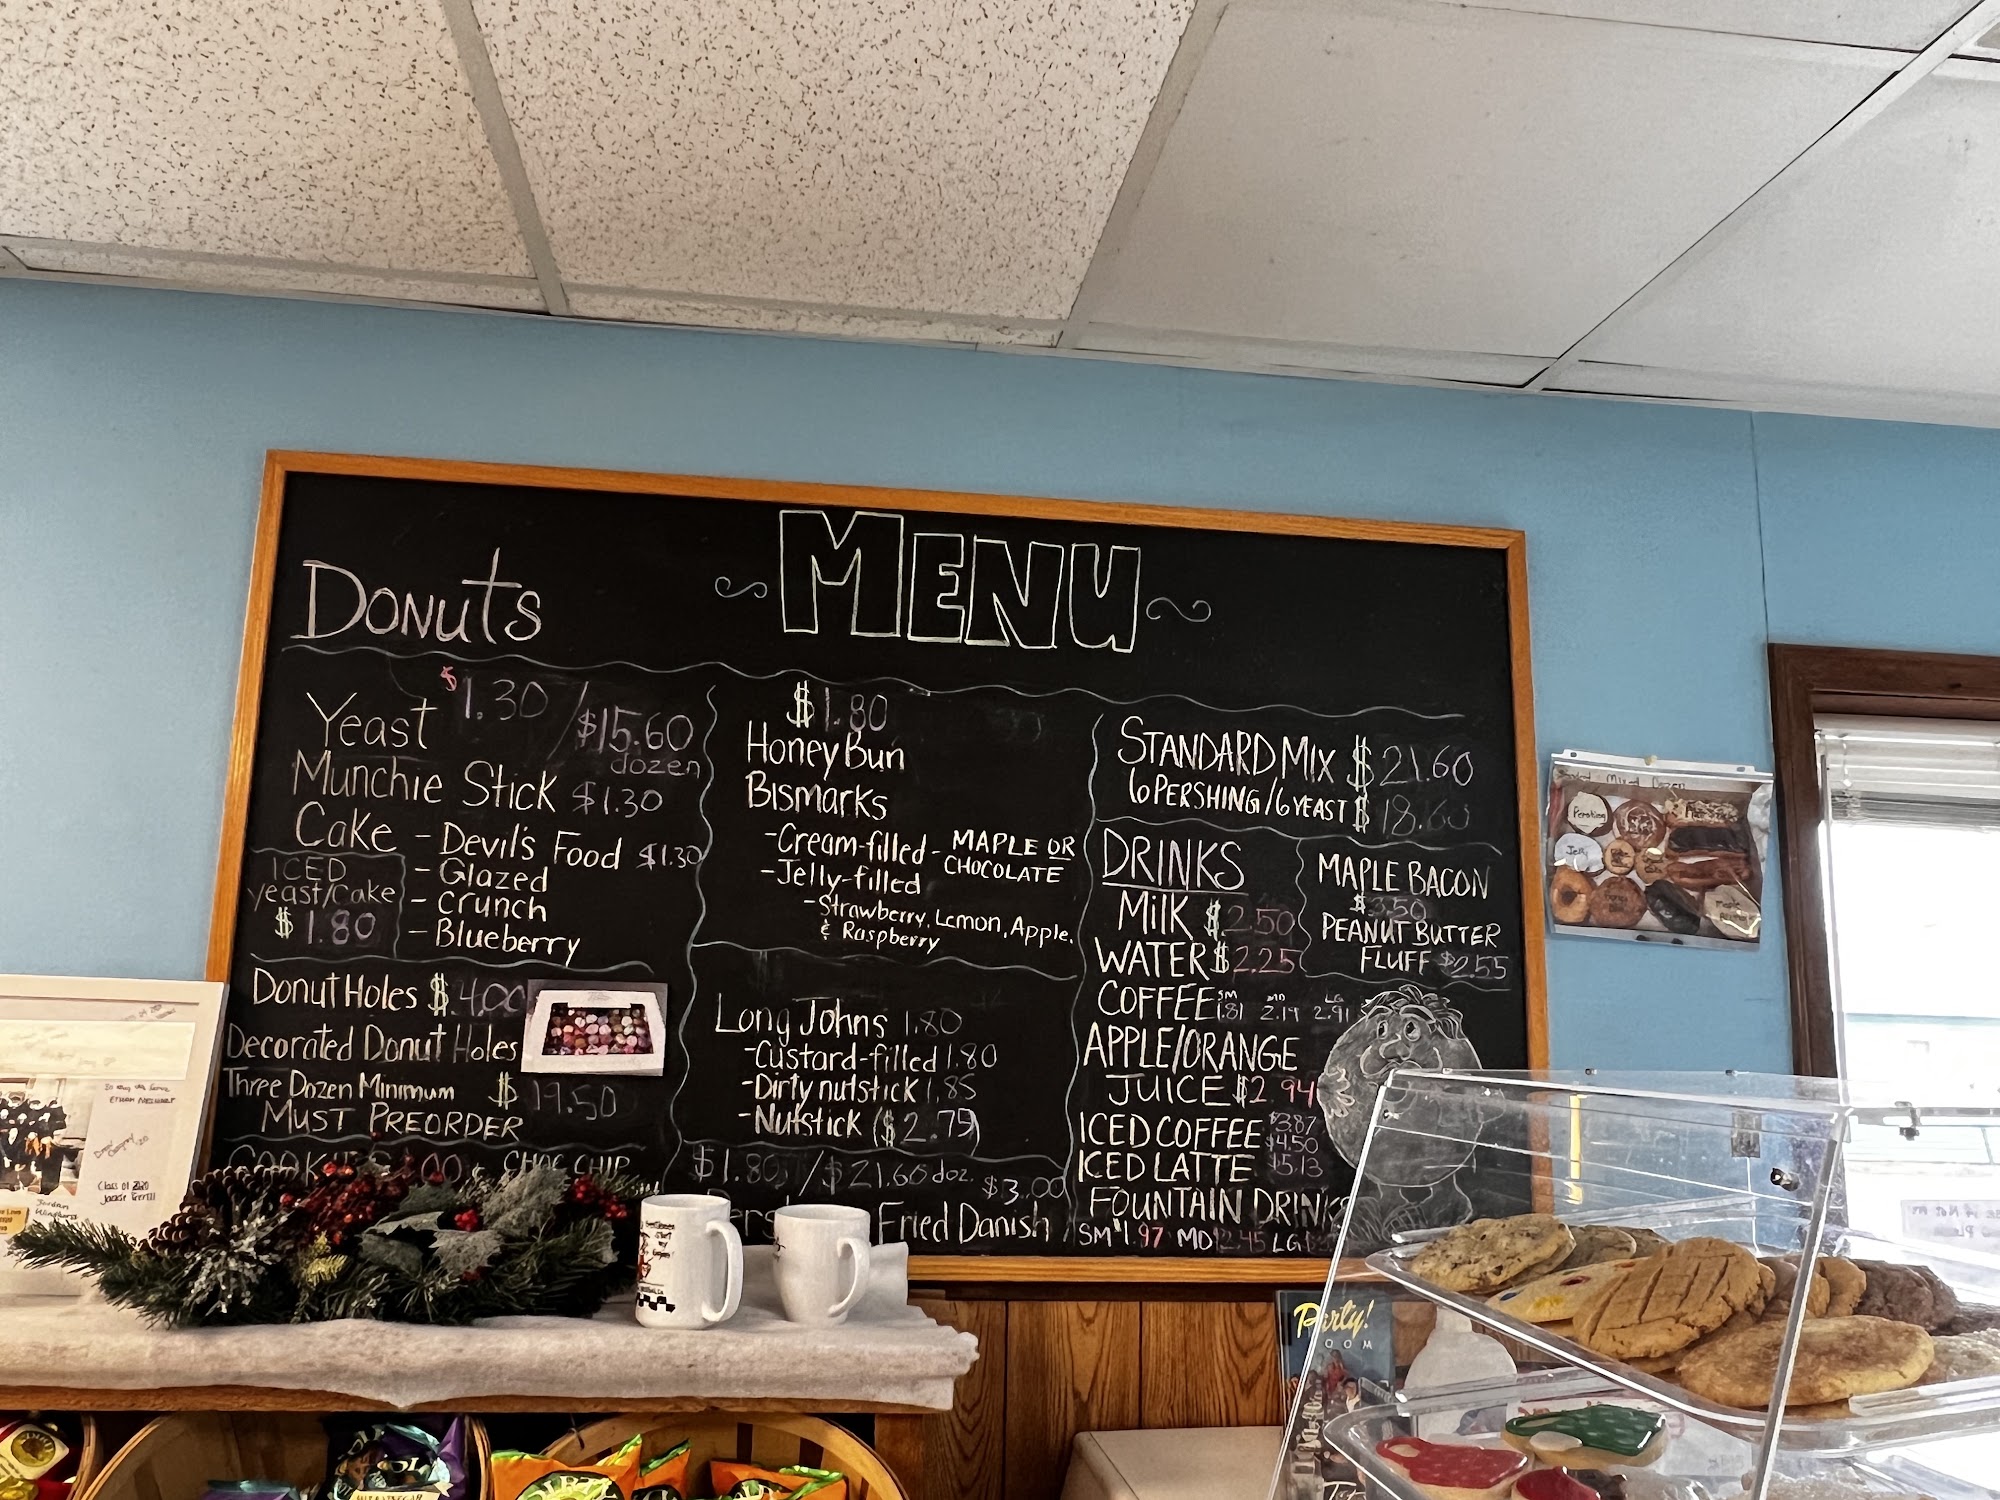 MENU
DONUTS
Yeast $1.30 / $15.60 dozen
Munchie Stick $1.30
Cake - Devil's Food $1.30
- Glazed
- Crunch
- Blueberry
ICED
yeast/Cake
$1.80
Donut Holes $4.00
Decorated Donut Holes
Three Dozen Minimum $19.50
MUST PREORDER
CHOC CHIP
$1.80
Honey Bun
Bismarks
- Cream-filled - MAPLE OR
CHOCOLATE
- Jelly-filled
- Strawberry, Lemon, Apple,
& Raspberry
Long Johns 1.80
- Custard-filled 1.80
- Dirty nutstick 1.85
- Nutstick ($2.79)
$1.80 / $21.60 doz. $3.00
Pers
Fried Danish
STANDARD MIX $21.60
6 PERSHING/6 YEAST $18.60
DRINKS
MILK $2.50
WATER $2.25
COFFEE SM 1.81 MD 2.19 LG 2.91
APPLE/ORANGE
JUICE $2.94
ICED COFFEE $3.87
$4.50
ICED LATTE $5.13
FOUNTAIN DRINKS
SM $1.97 MD $2.45 LG
MAPLE BACON
$3.50
PEANUT BUTTER
FLUFF $2.55
Mixed Dozen
Pershing
Jelly
Class of 2020
Party!
ROOM